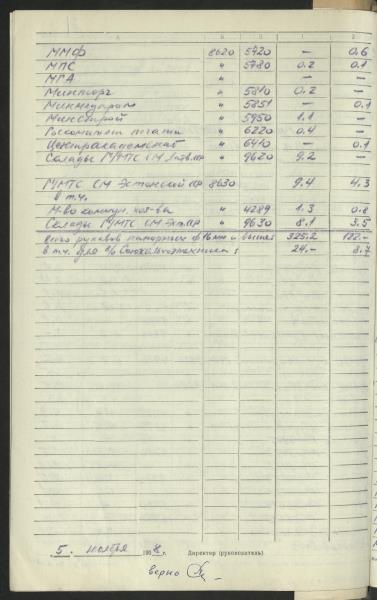 А Б В 1 2
ММФ 8620 5420 — 0.6
МПС " 5780 0.2 0.1
МРА " — —
Минторг " 5810 0.2 —
Минмедпром " 5851 — 0.1
Минстрой " 5950 1.1 —
Госкомитет печати " 6220 0.4 —
Центракадемснаб " 6410 — 0.1
Склады ГУМТС СМ Латв.ССР " 9620 9.2 —
ГУМТС СМ Эстонской ССР 8630 9.4 4.3
в т.ч.
М-во коммун. хоз-ва " 4289 1.3 0.8
Склады ГУМТС СМ Эст.ССР " 9630 8.1 3.5
всего рукавов напорных ф 16 мм и выше: 325.2 132.—
в т.ч. для 24.— 8.7
„5. ноября 1968 г. Директор (руководитель)
верно